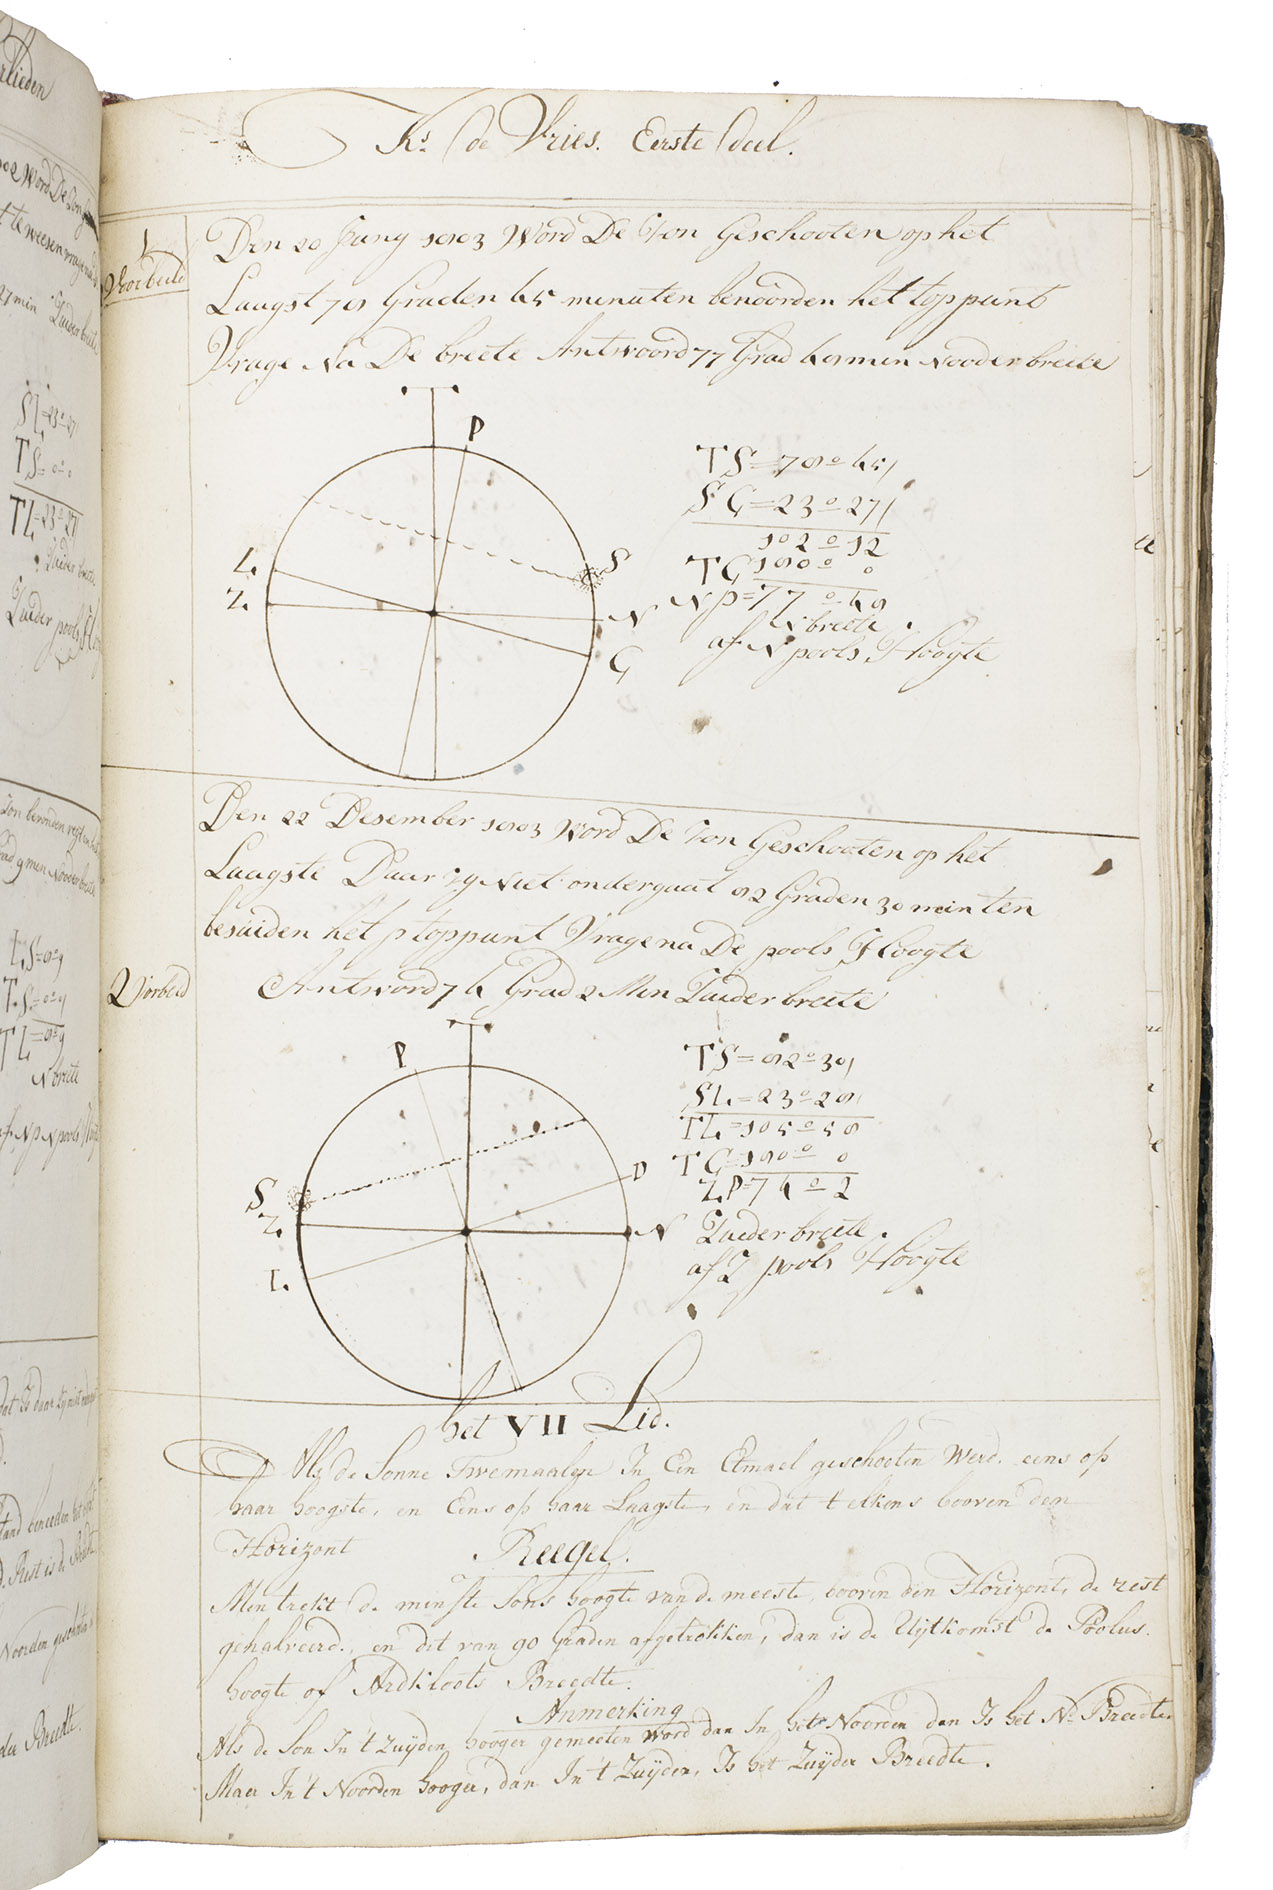 rlieden
SL=23°27
TS=0°0
TL=23°27
Zuider breete
Zuider pools
N breete
Ks. de Vries. Eerste deel.
1
Voorbeeld
Den 20 Juny 1803 Word De Son Geschooten op het
Laagst 78 Graden 45 minuten benoorden het toppunt
Vrage Na De breete Antwoord 77 Grad 48 min Nooder breete
T
P
L.
Z.
S
N
C
TS=78°45
SC=23°27
102°12
TC 180°0
Np=77°48
N breete
af N pools Hoogte
Den 22 Desember 1803 Word De Son Geschooten op het
Laagste Daar zy Niet ondergaat 82 Graden 30 minten
besuiden het ptoppunt Vrage na De pools Hoogte
2 Vorbeld
Antword 74 Grad 2 Min Zuider breete
T
P
S
Z.
L.
N
TS=82°30
SL.=23°28
TL.=105°58
TC=180°0
Z.P=74°2
Zuider breete.
af Z pools Hoogte
het VII Lid.
Als de Sonne Twemaalen In Een Etmael geschooten Werd. eens op
haar hoogste, en Eens op haar Laagste, en dat t elkens booven den
Horizont
Reegel.
Men trekt de minste Sons hoogte van de meeste, booven den Horizont, de rest
gehalveerd, en dit van 90 Graden afgetrokken, dan is de Uytkomst de Poolus.
hoogte of Ardkloots Breedte.
Anmerking
Als de Son In 't Zuyden hooger gemeeten word dan In het Noorden dan Is het N. Breedte.
Maer In 't Noorden hooger, dan In 't Zuyden, Is het Zuyder Breedte.